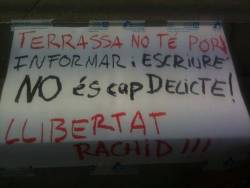 TERRASSA NO TÉ POR!
INFORMAR i ESCRIURE
NO éS cap DELICTE!
LLIBERTAT
RACHID!!!